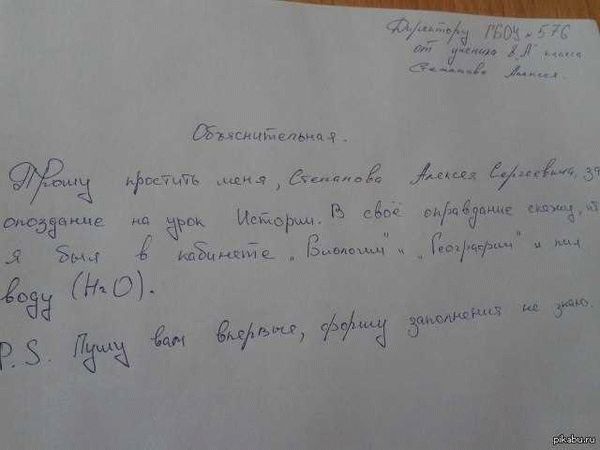 Директору ГБОУ №576
от ученика 8 "А" класса
Степанова Алексея.
Объяснительная.
Прошу простить меня, Степанова Алексея Сергеевича, за
опоздание на урок Истории. В своё оправдание скажу, чт
я был в кабинете „Биологии" и „Географии" и пил
воду (H₂O).
P.S. Пушу вам впервые, форму заполнения не знаю.
pikabu.ru